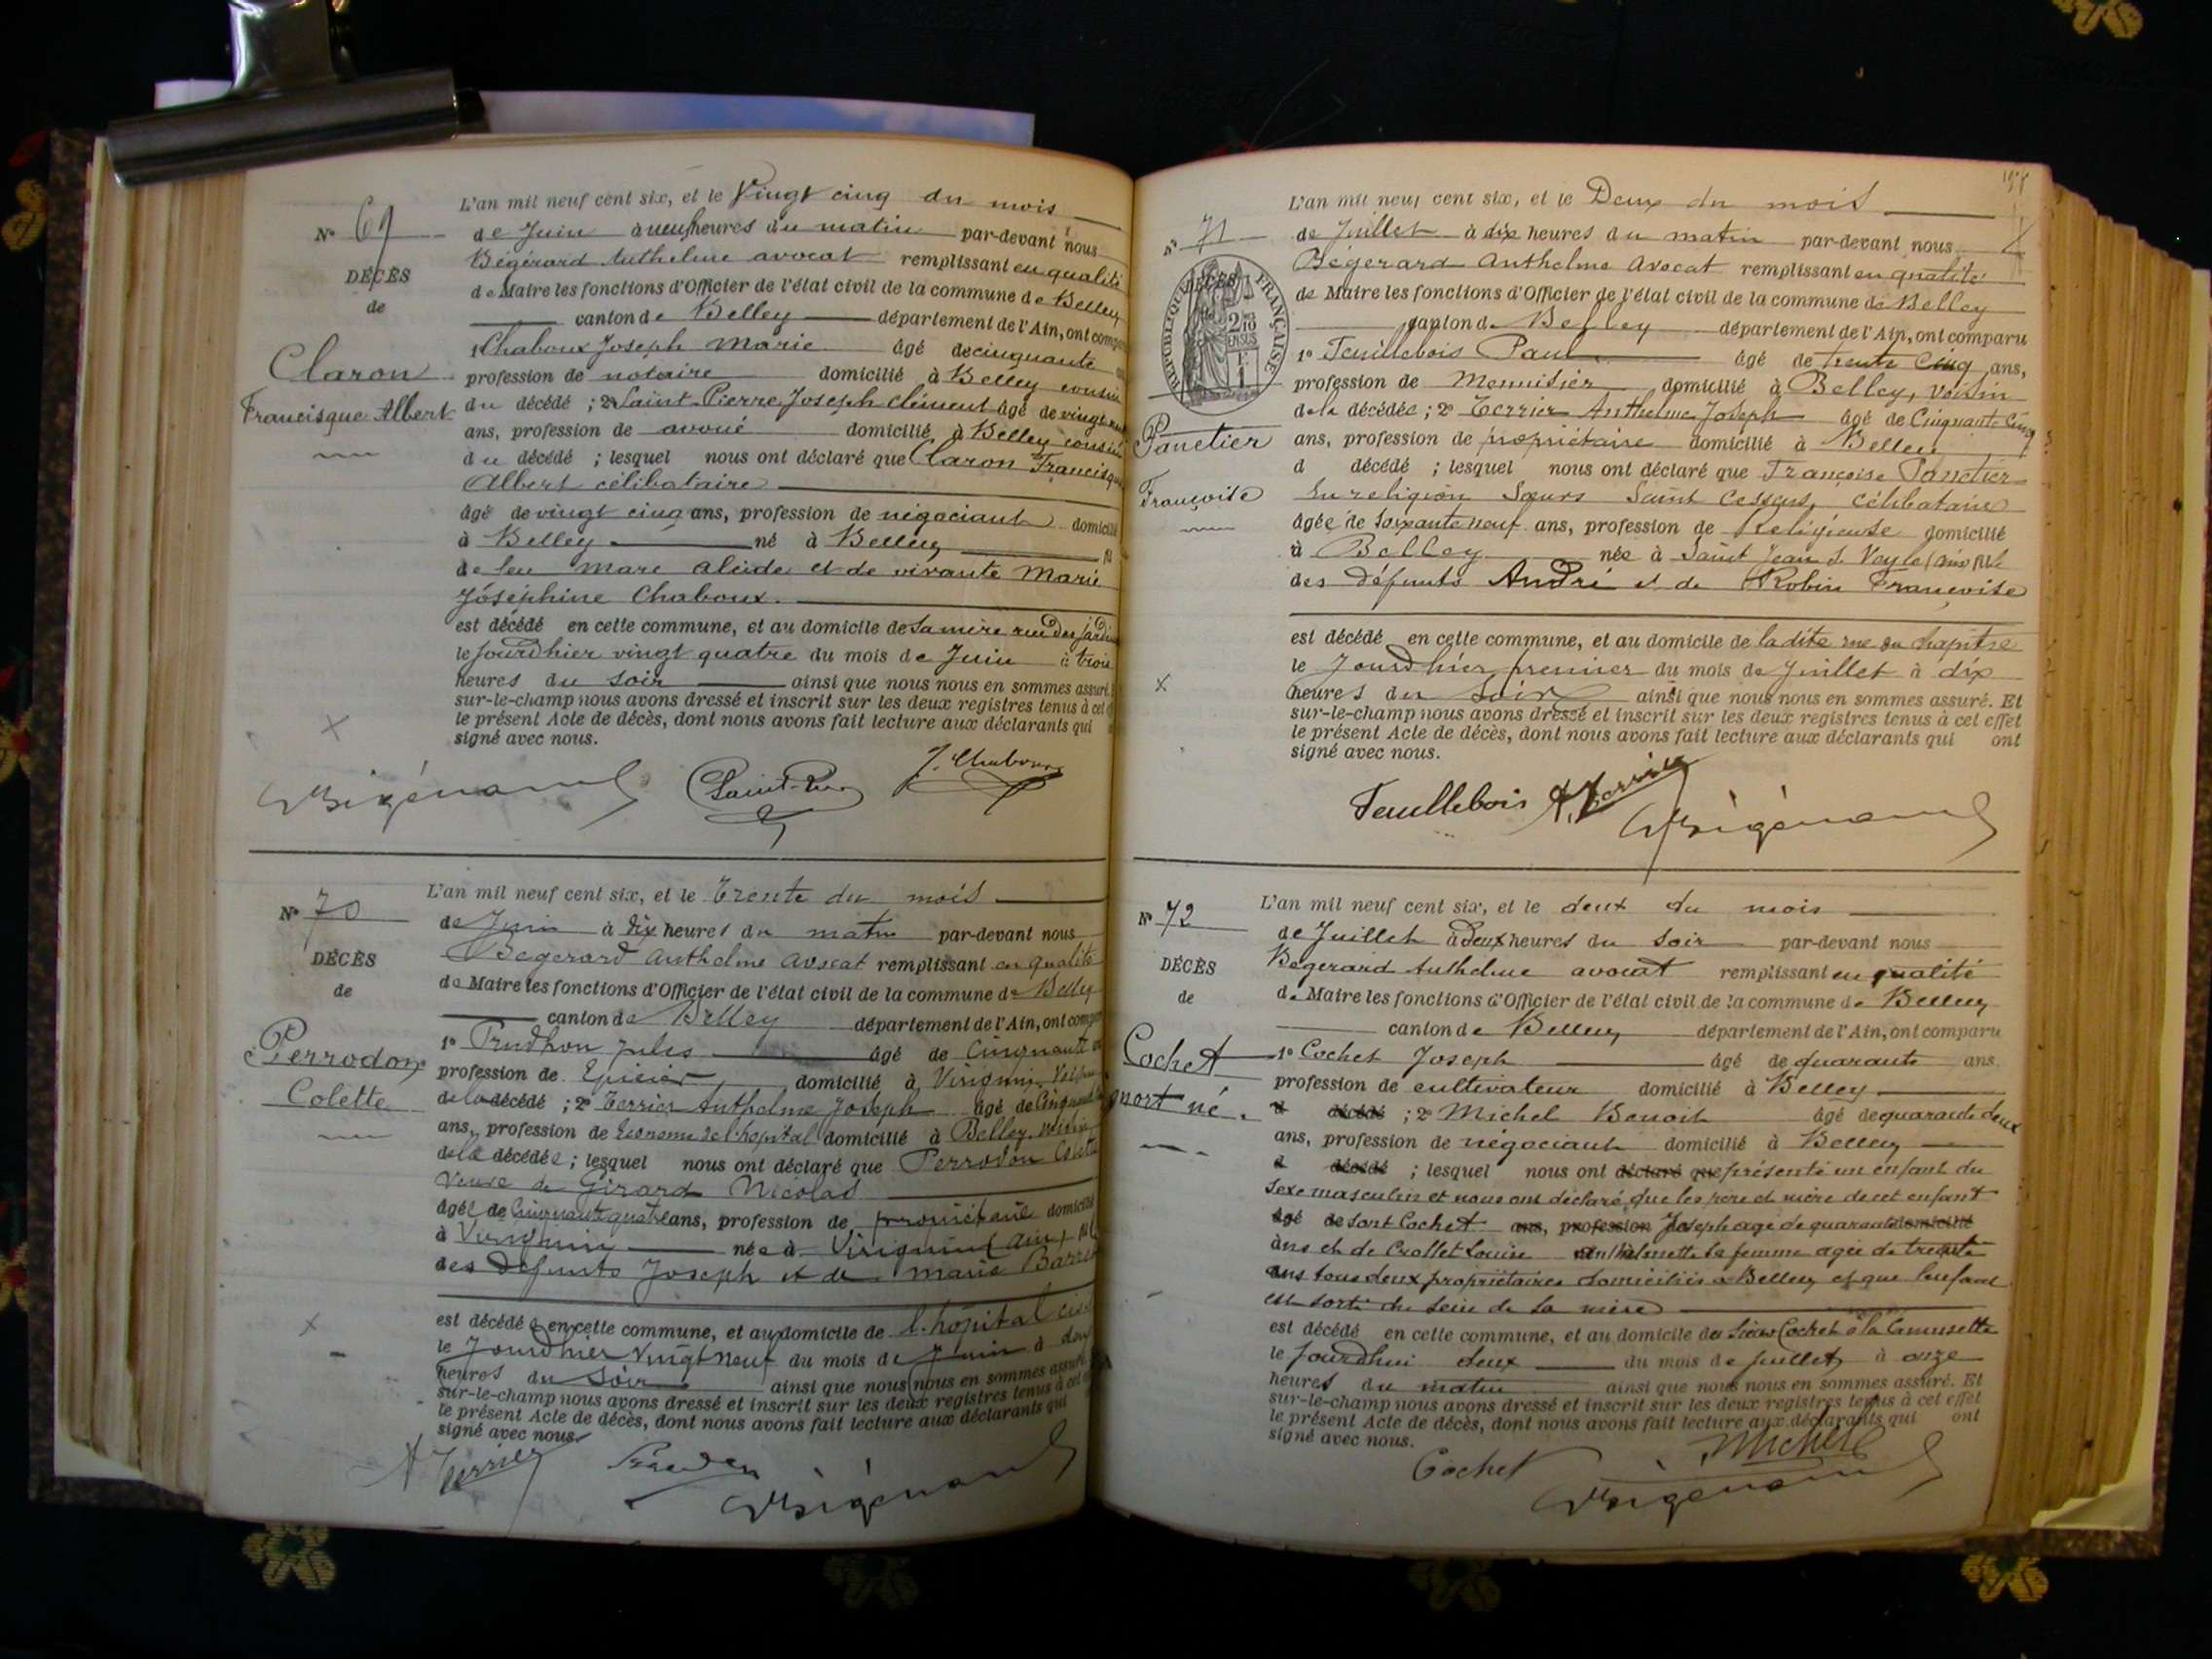 L'an mil neuf cent six, et le Vingt cinq du mois
N° 69
de Juin à neuf heures du matin par-devant nous
Bégérard Anthelme avocat remplissant en qualité
DÉCÈS
de Maire les fonctions d'Officier de l'état civil de la commune de Belley
de
canton de Belley département de l'Ain, ont
1° Chaboux Joseph Marie âgé de cinquante
Claron
profession de notaire domicilié à Belley cousin
Francisque Albert
du décédé ; 2° Saint-Pierre Joseph Clément âgé de vingt
ans, profession de avoué domicilié à Belley cousin
du décédé ; lesquel nous ont déclaré que Claron Francisque
Albert célibataire
âgé de vingt cinq ans, profession de négociant domicilié
à Belley né à Belley
de feu Marc Alcide et de vivante Marie
Joséphine Chaboux.
est décédé en cette commune, et au domicile de sa mère rue des
le jourdhier vingt quatre du mois de Juin à trois
heures du soir ainsi que nous nous en sommes assuré.
sur-le-champ nous avons dressé et inscrit sur les deux registres tenus à cet
le présent Acte de décès, dont nous avons fait lecture aux déclarants qui
signé avec nous.
Bégérard Saint-Pierre J. Chaboux
L'an mil neuf cent six, et le Trente du mois
N° 70
de Juin à dix heures du matin par-devant nous
Bégerard Anthelme avocat remplissant en qualité
DÉCÈS
de Maire les fonctions d'Officier de l'état civil de la commune de Belley
de
canton de Belley département de l'Ain, ont
1° Prudhon Jules âgé de Cinquante
Perrodon
profession de Epicier domicilié à Virignin
Colette
de la décédé ; 2° Terrier Anthelme Joseph âgé de
ans, profession de Econome de l'hopital domicilié à Belley
de la décédée ; lesquel nous ont déclaré que Perrodon Colette
Veuve de Girard Nicolas
âgée de Cinquante quatre ans, profession de propriétaire domicilié
à Virignin née à Virignin (Ain)
des défunts Joseph et de Marie
est décédée en cette commune, et au domicile de l'hôpital
le Jourdhier Vingt neuf du mois de Juin à
heures du soir ainsi que nous nous en sommes assuré.
sur-le-champ nous avons dressé et inscrit sur les deux registres tenus à cet
le présent Acte de décès, dont nous avons fait lecture aux déclarants qui
signé avec nous.
A Terrier Bégérard
L'an mil neuf cent six, et le Deux du mois
N° 71
de Juillet à dix heures du matin par-devant nous
Bégerard Anthelme Avocat remplissant en qualité
DÉCÈS
RÉPUBLIQUE FRANÇAISE
2/10 EN SUS
de Maire les fonctions d'Officier de l'état civil de la commune de Belley
canton de Belley département de l'Ain, ont comparu
1° Feuillebois Paul âgé de trente cinq ans,
profession de Menuisier domicilié à Belley, voisin
de la décédée ; 2° Terrier Anthelme Joseph âgé de Cinquante Cinq
Panetier
ans, profession de propriétaire domicilié à Belley
d décédé ; lesquel nous ont déclaré que Françoise Panetier
Françoise
En religion Sœurs Saint Cessus, célibataire
âgée de soixante neuf ans, profession de Religieuse domicilié
à Belley née à Saint Jean S. Veyle (Ain) fille
des défunts André et de Robin Françoise
est décédé en cette commune, et au domicile de la dite rue du chapitre
le Jourdhier premier du mois de Juillet à dix
heures du soir ainsi que nous nous en sommes assuré. Et
sur-le-champ nous avons dressé et inscrit sur les deux registres tenus à cet effet
le présent Acte de décès, dont nous avons fait lecture aux déclarants qui ont
signé avec nous.
Feuillebois A. Terrier Bégérard
L'an mil neuf cent six, et le deux du mois
N° 72
de Juillet à deux heures du soir par-devant nous
Begerard Anthelme avocat remplissant en qualité
DÉCÈS
de Maire les fonctions d'Officier de l'état civil de la commune de Belley
de
canton de Belley département de l'Ain, ont comparu
Cochet
1° Cochet Joseph âgé de quarante ans.
profession de cultivateur domicilié à Belley
mort né.
d décédé ; 2° Michel Benoit âgé de quarante deux
ans, profession de négociant domicilié à Belley
d décédé ; lesquel nous ont déclaré que présenté un enfant du
sexe masculin et nous ont déclaré que les père et mère de cet enfant
âgé de sont Cochet ans, profession Joseph agé de quarante domicilié
ans et de Crollet Louise Anthelmette sa femme agée de trente
ans tous deux propriétaires domiciliés à Belley et que l'enfant
est sorti du sein de sa mère
est décédé en cette commune, et au domicile du sieur Cochet à la Camusette
le jourdhui deux du mois de juillet à onze
heures du matin ainsi que nous nous en sommes assuré. Et
sur-le-champ nous avons dressé et inscrit sur les deux registres tenus à cet effet
le présent Acte de décès, dont nous avons fait lecture aux déclarants qui ont
signé avec nous.
Cochet Michel
Bégérard